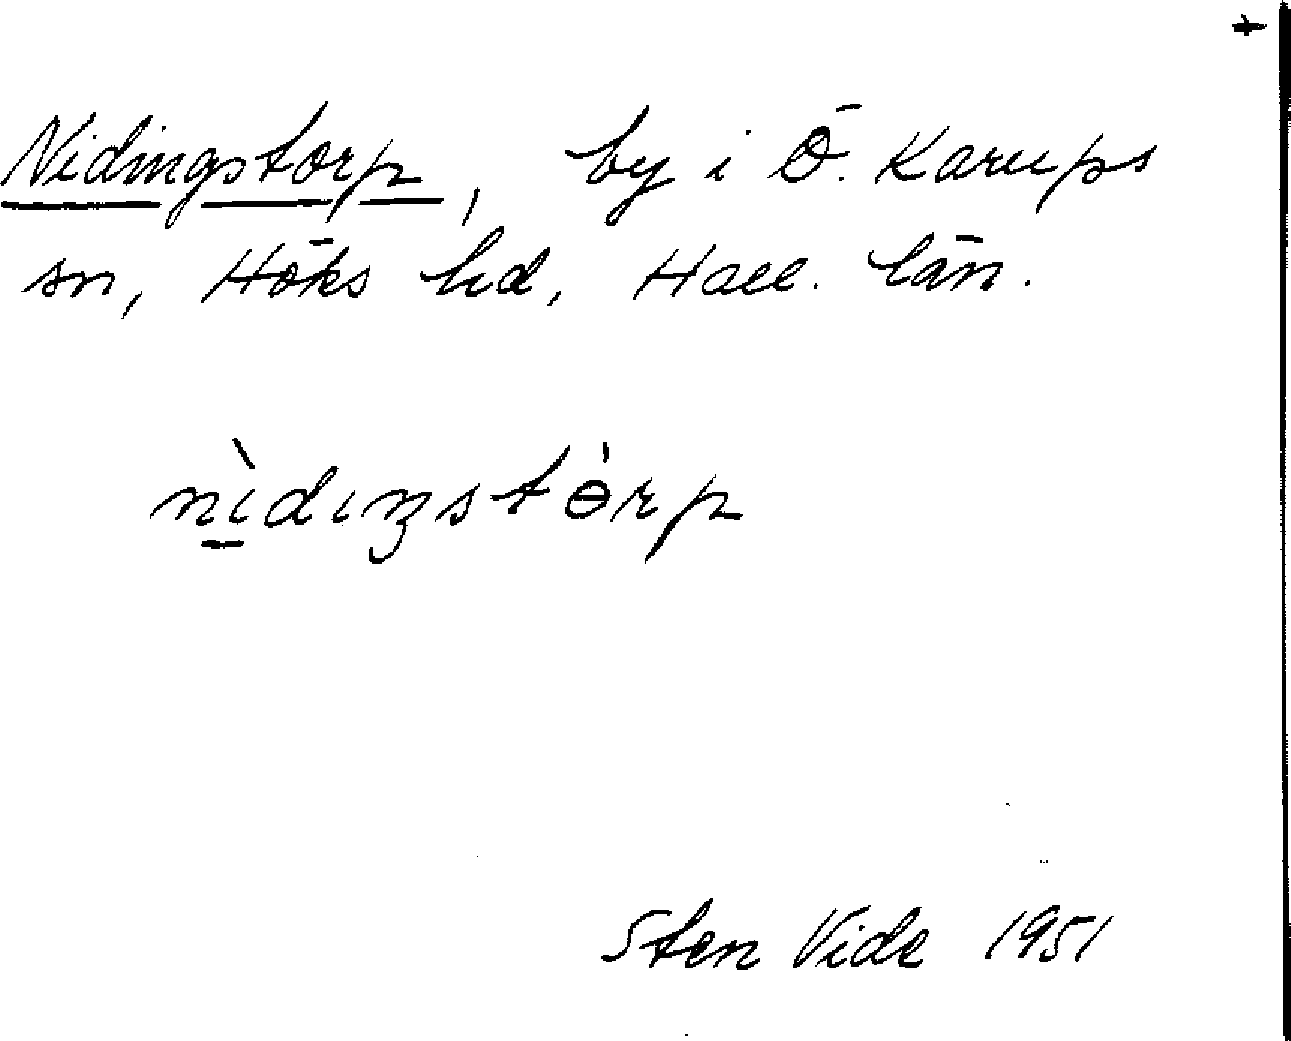 +
Nidingstorp, by i Ö. Karups
sn, Höks hd, Hall. län.
nìdıŋstɵ̀rp
Sten Vide 1951